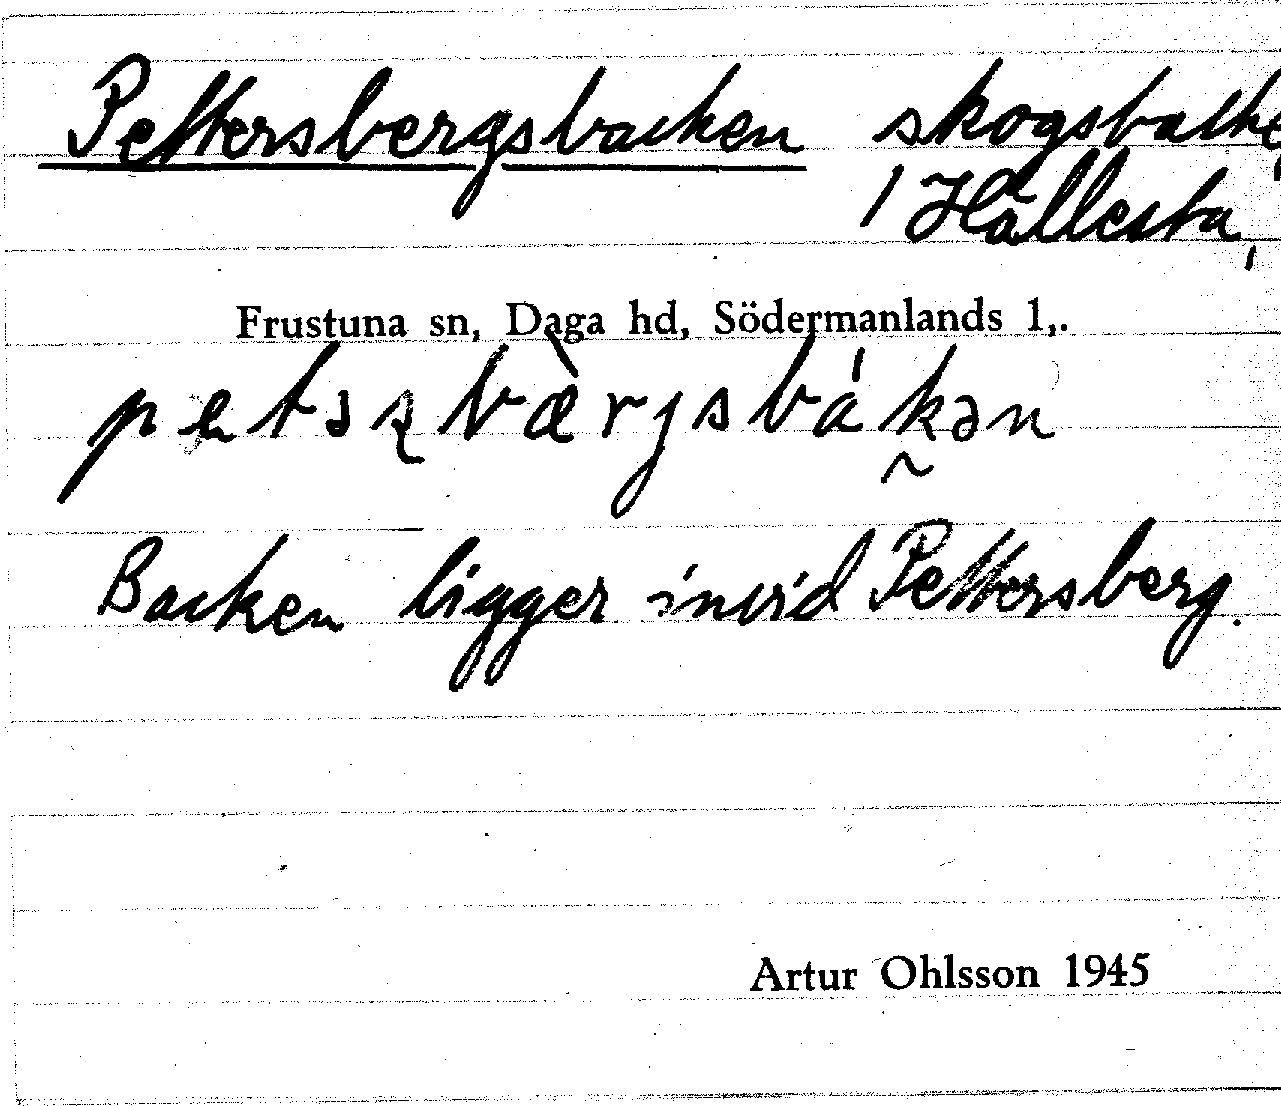 Pettersbergsbacken skogsbacke,
/ Hällesta,
Frustuna sn, Daga hd, Södermanlands l,.
Backen ligger invid Pettersberg.
Artur Ohlsson 1945